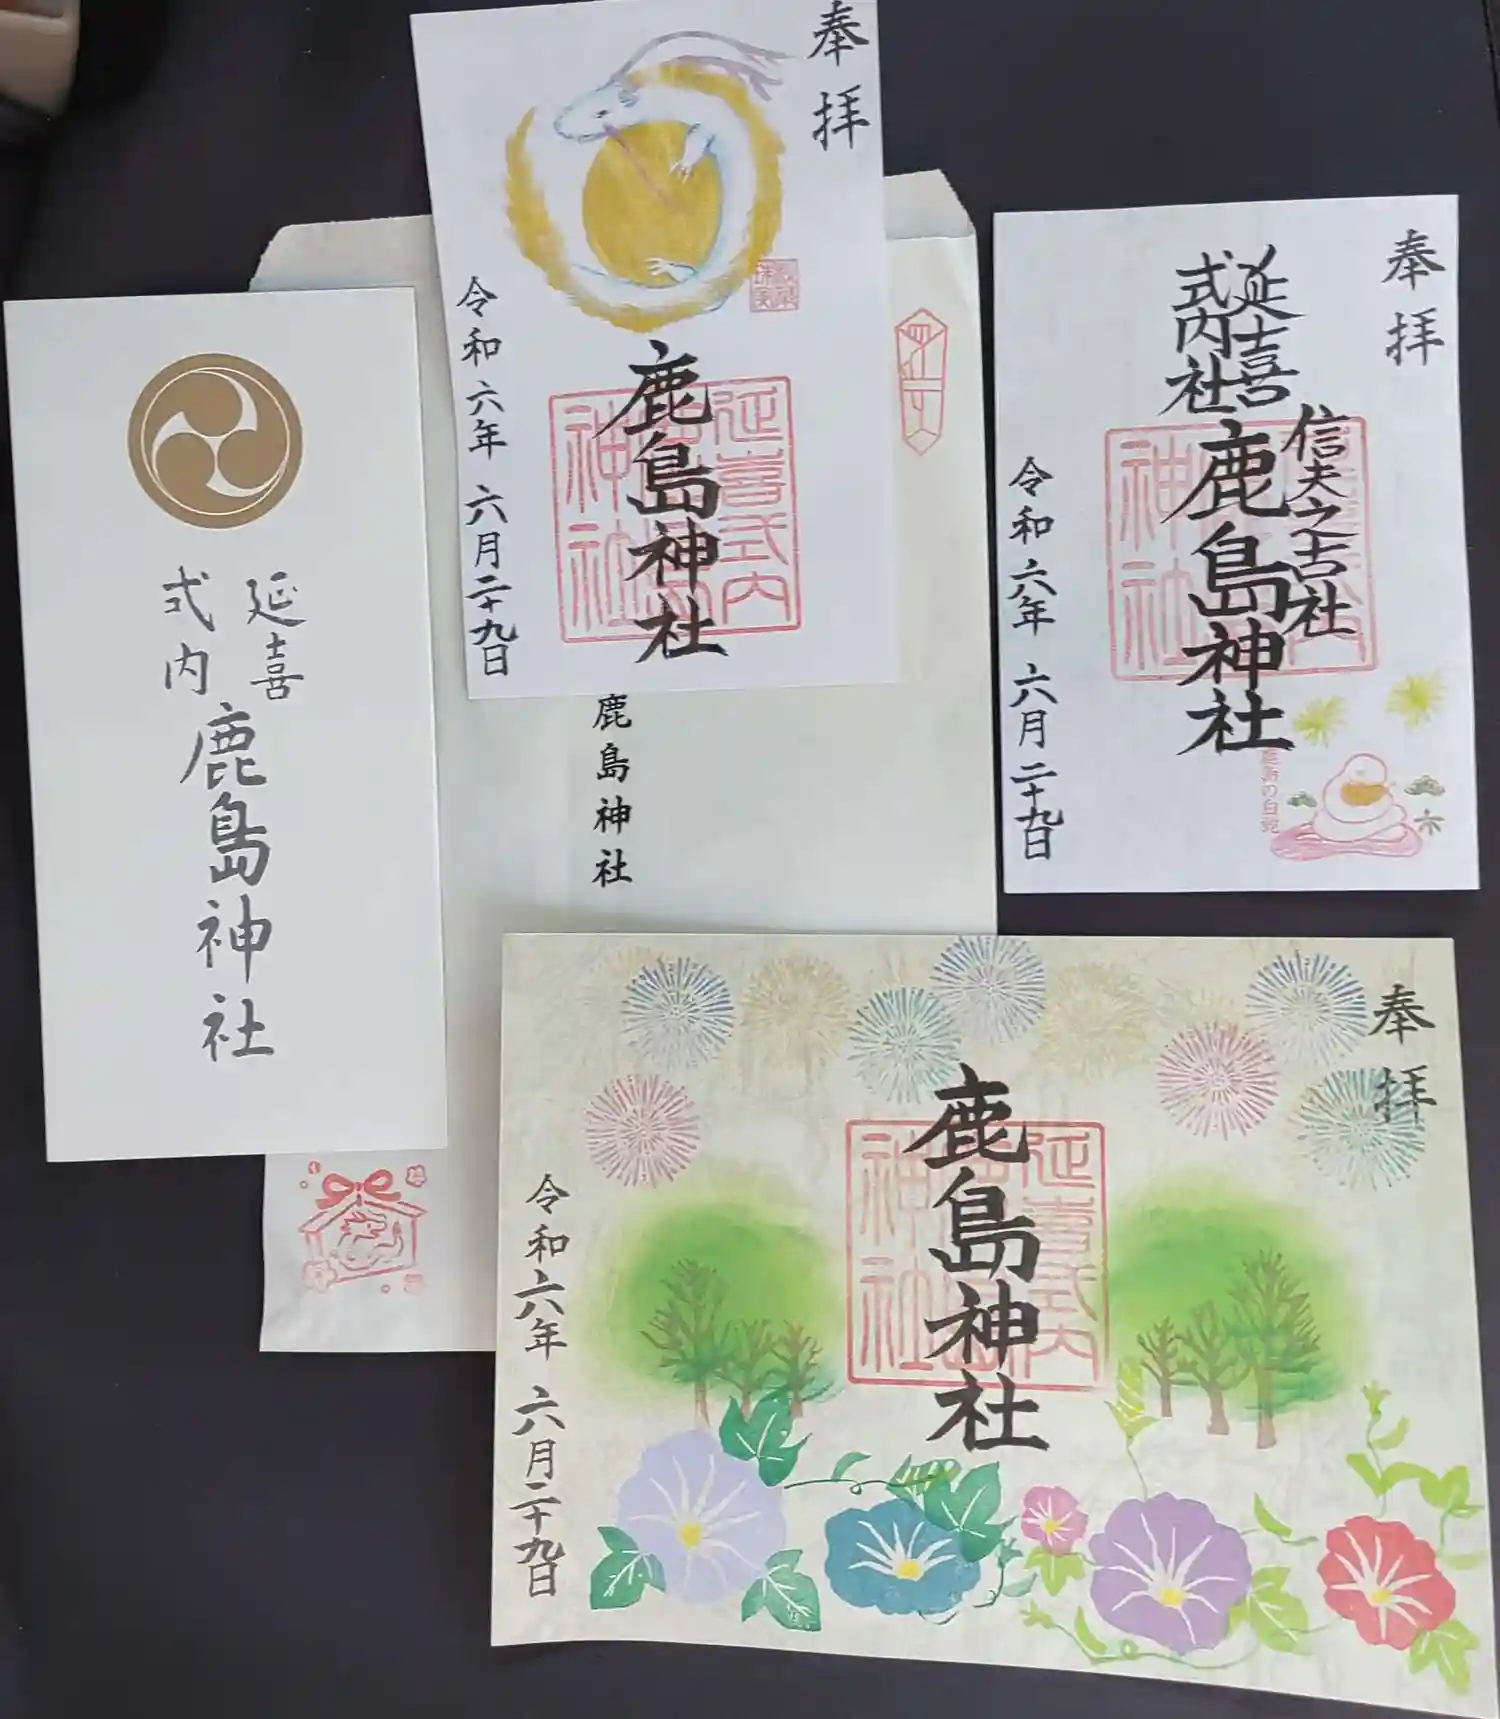 奉拝
鹿島神社
延喜式内
神社
令和六年 六月二十九日
奉拝
延喜
式内社
信夫之古社
鹿島神社
神社
鹿島の白蛇
令和六年 六月二十九日
延喜
式内
鹿島神社
鹿島神社
奉拝
鹿島神社
延喜式内
神社
令和六年 六月二十九日